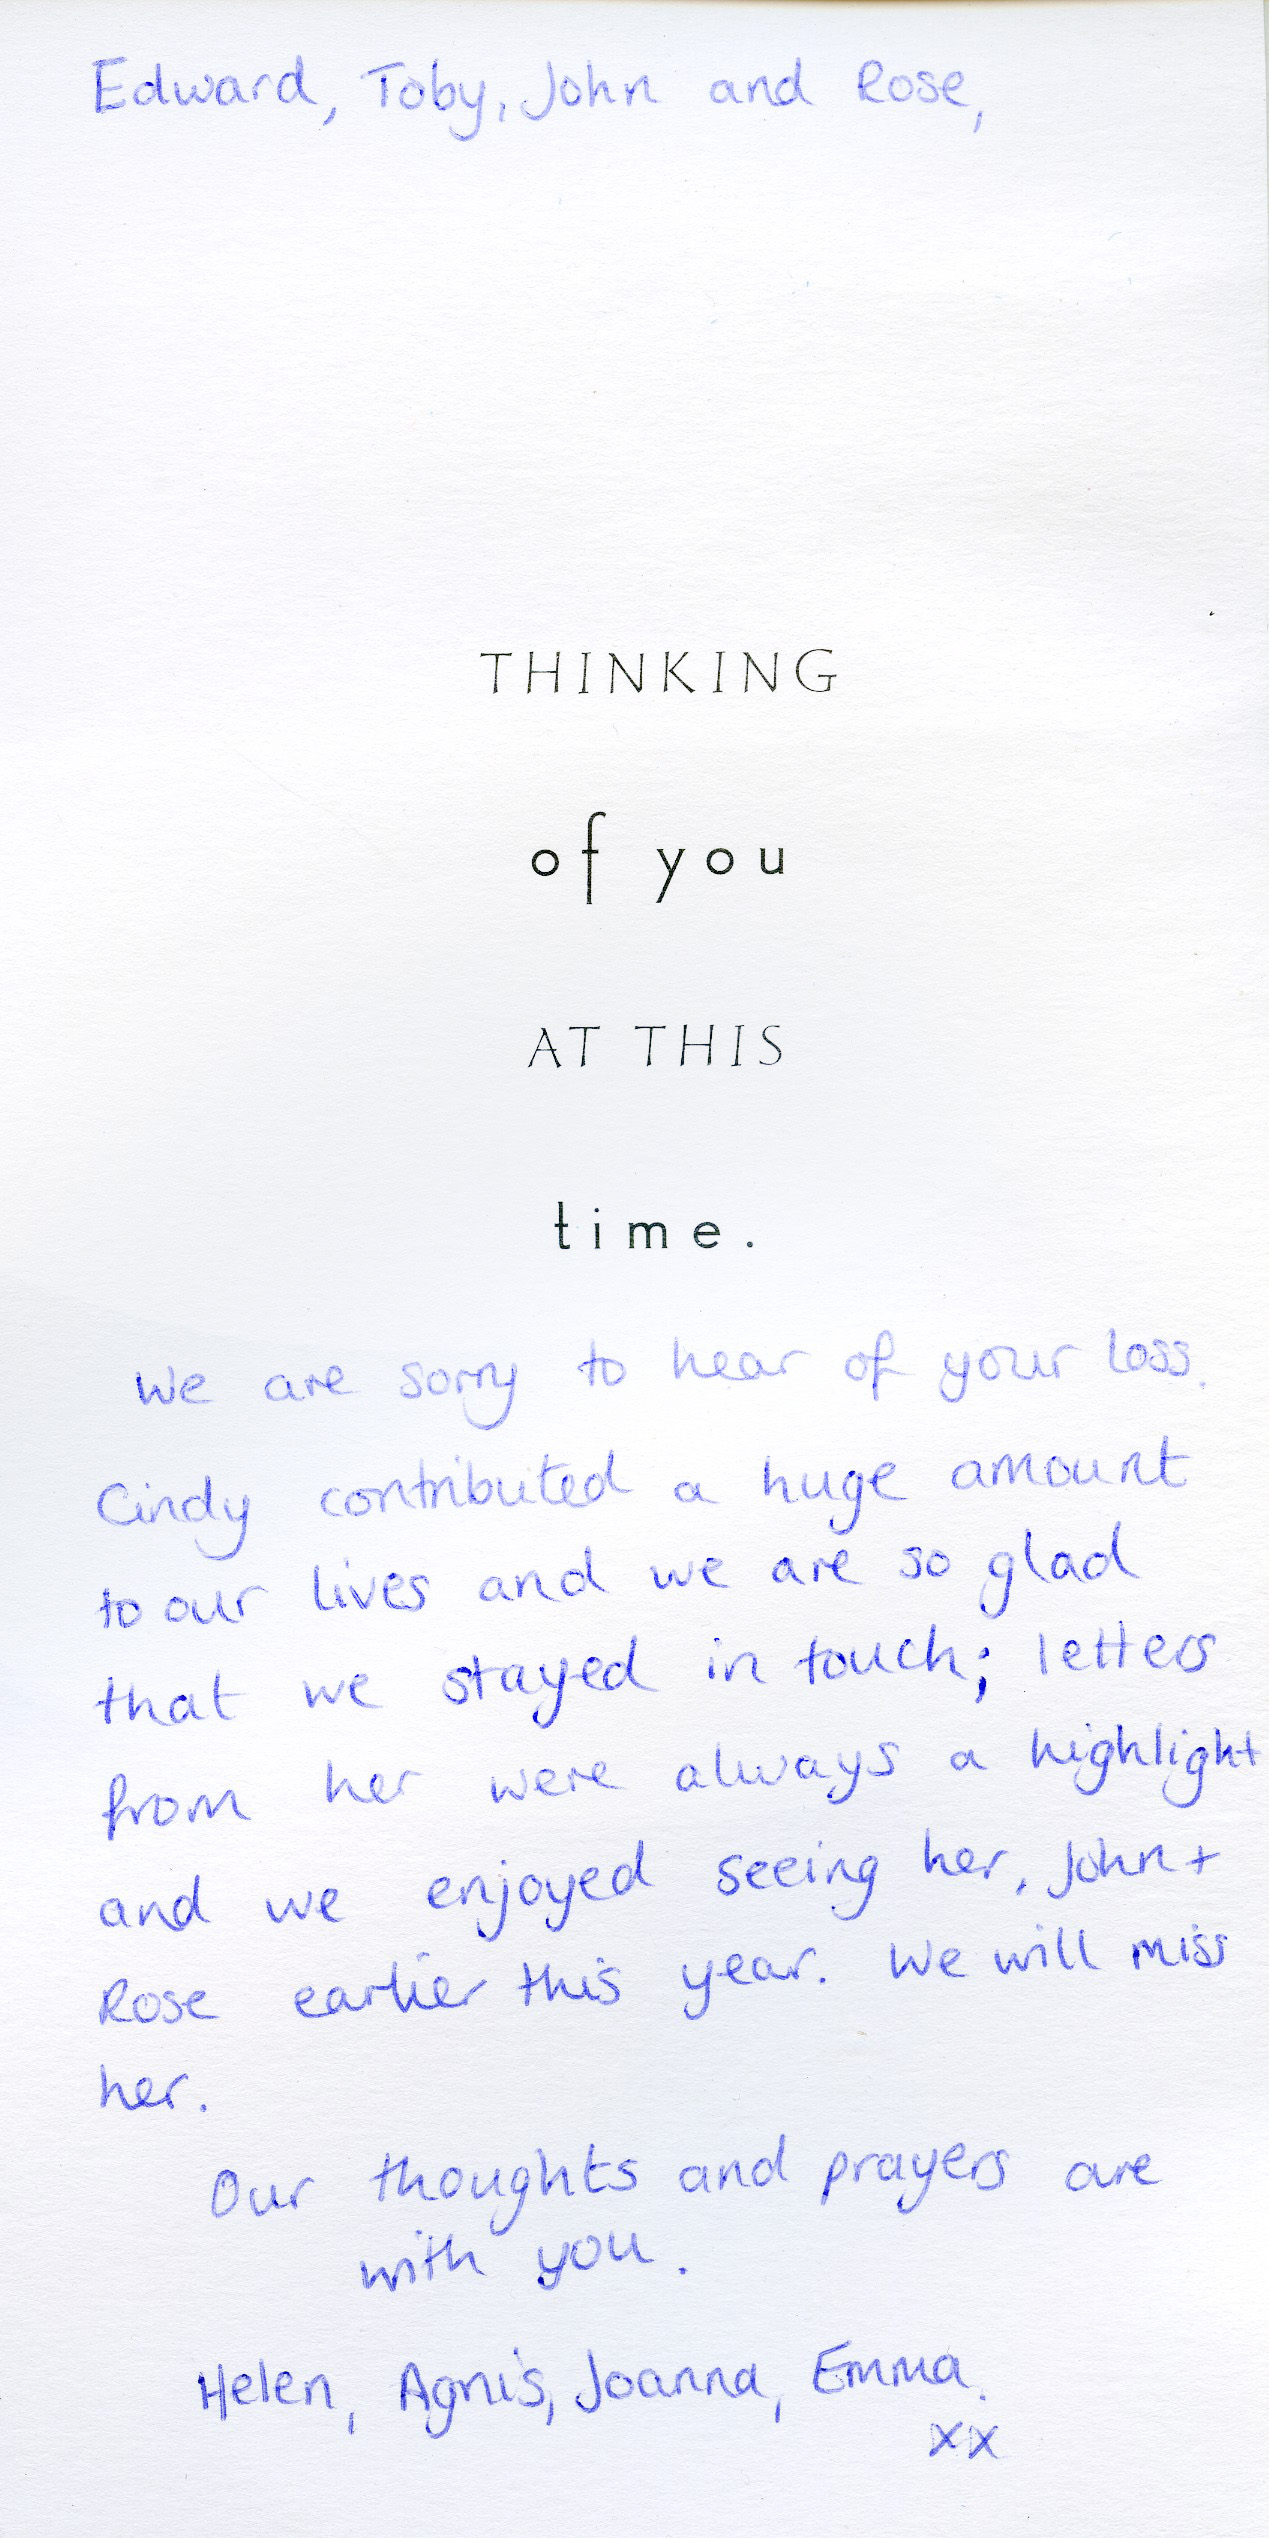 Edward, Toby, John and Rose,
THINKING
of you
AT THIS
time.
We are sorry to hear of your loss.
Cindy contributed a huge amount
to our lives and we are so glad
that we stayed in touch; letters
from her were always a highlight
and we enjoyed seeing her, John +
Rose earlier this year. We will miss
her.
Our thoughts and prayers are
with you.
Helen, Agnis, Joanna, Emma.
xx